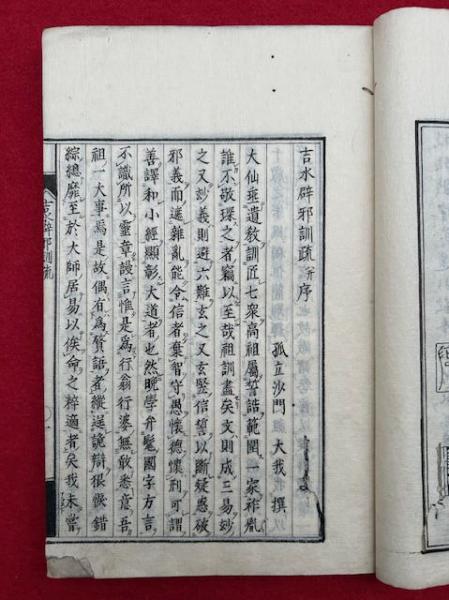 吉水辟邪訓疏并序
孤立沙門 大我 撰
大仙垂遺教訓匠七衆高祖屬誓誥範圍一家祚胤
誰不敬㻱之者竊以至哉祖訓盡矣文則成三易妙
之又妙義則避六難玄之又玄竪信誓以斷疑惑破
邪義而遮雜乱能令信者棄智守愚懷德懷刑可謂
善譯和小經顯彰大道者也然晚學弁髦國字方言
不識所以靈章謾言惟是爲行翁行婆無敢悉意吾
祖一大事焉是故偶有爲贅語者縱逞詭辯狠悷錯
綜總靡至於大師居易以俟命之粹適者矣我未嘗
吉水辟邪訓疏